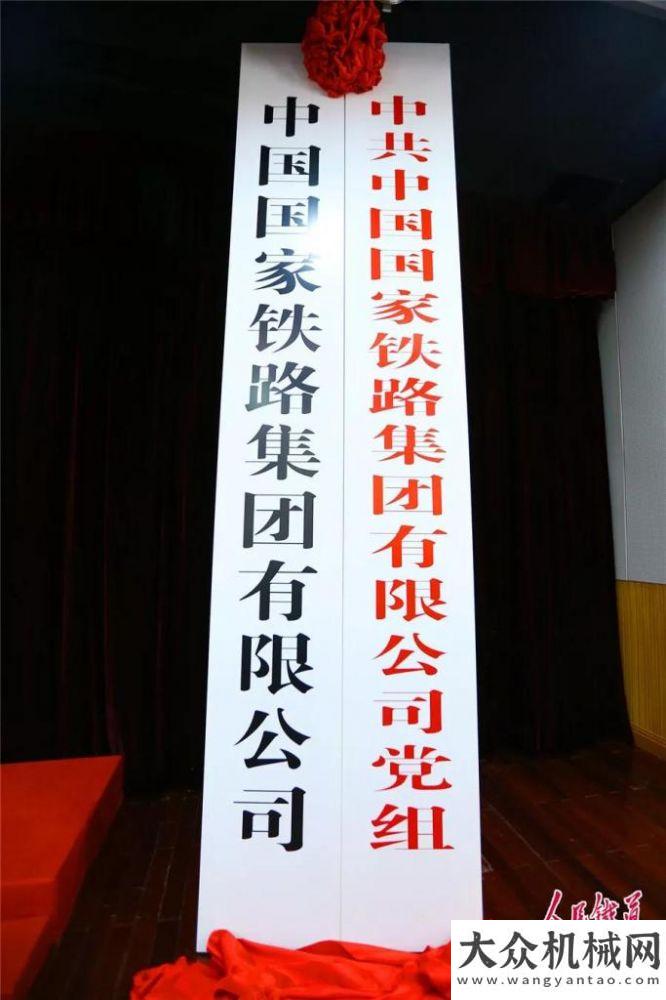 中共中国国家铁路集团有限公司党组
中国国家铁路集团有限公司
人民铁道
大众机械网
www.wangyantao.com